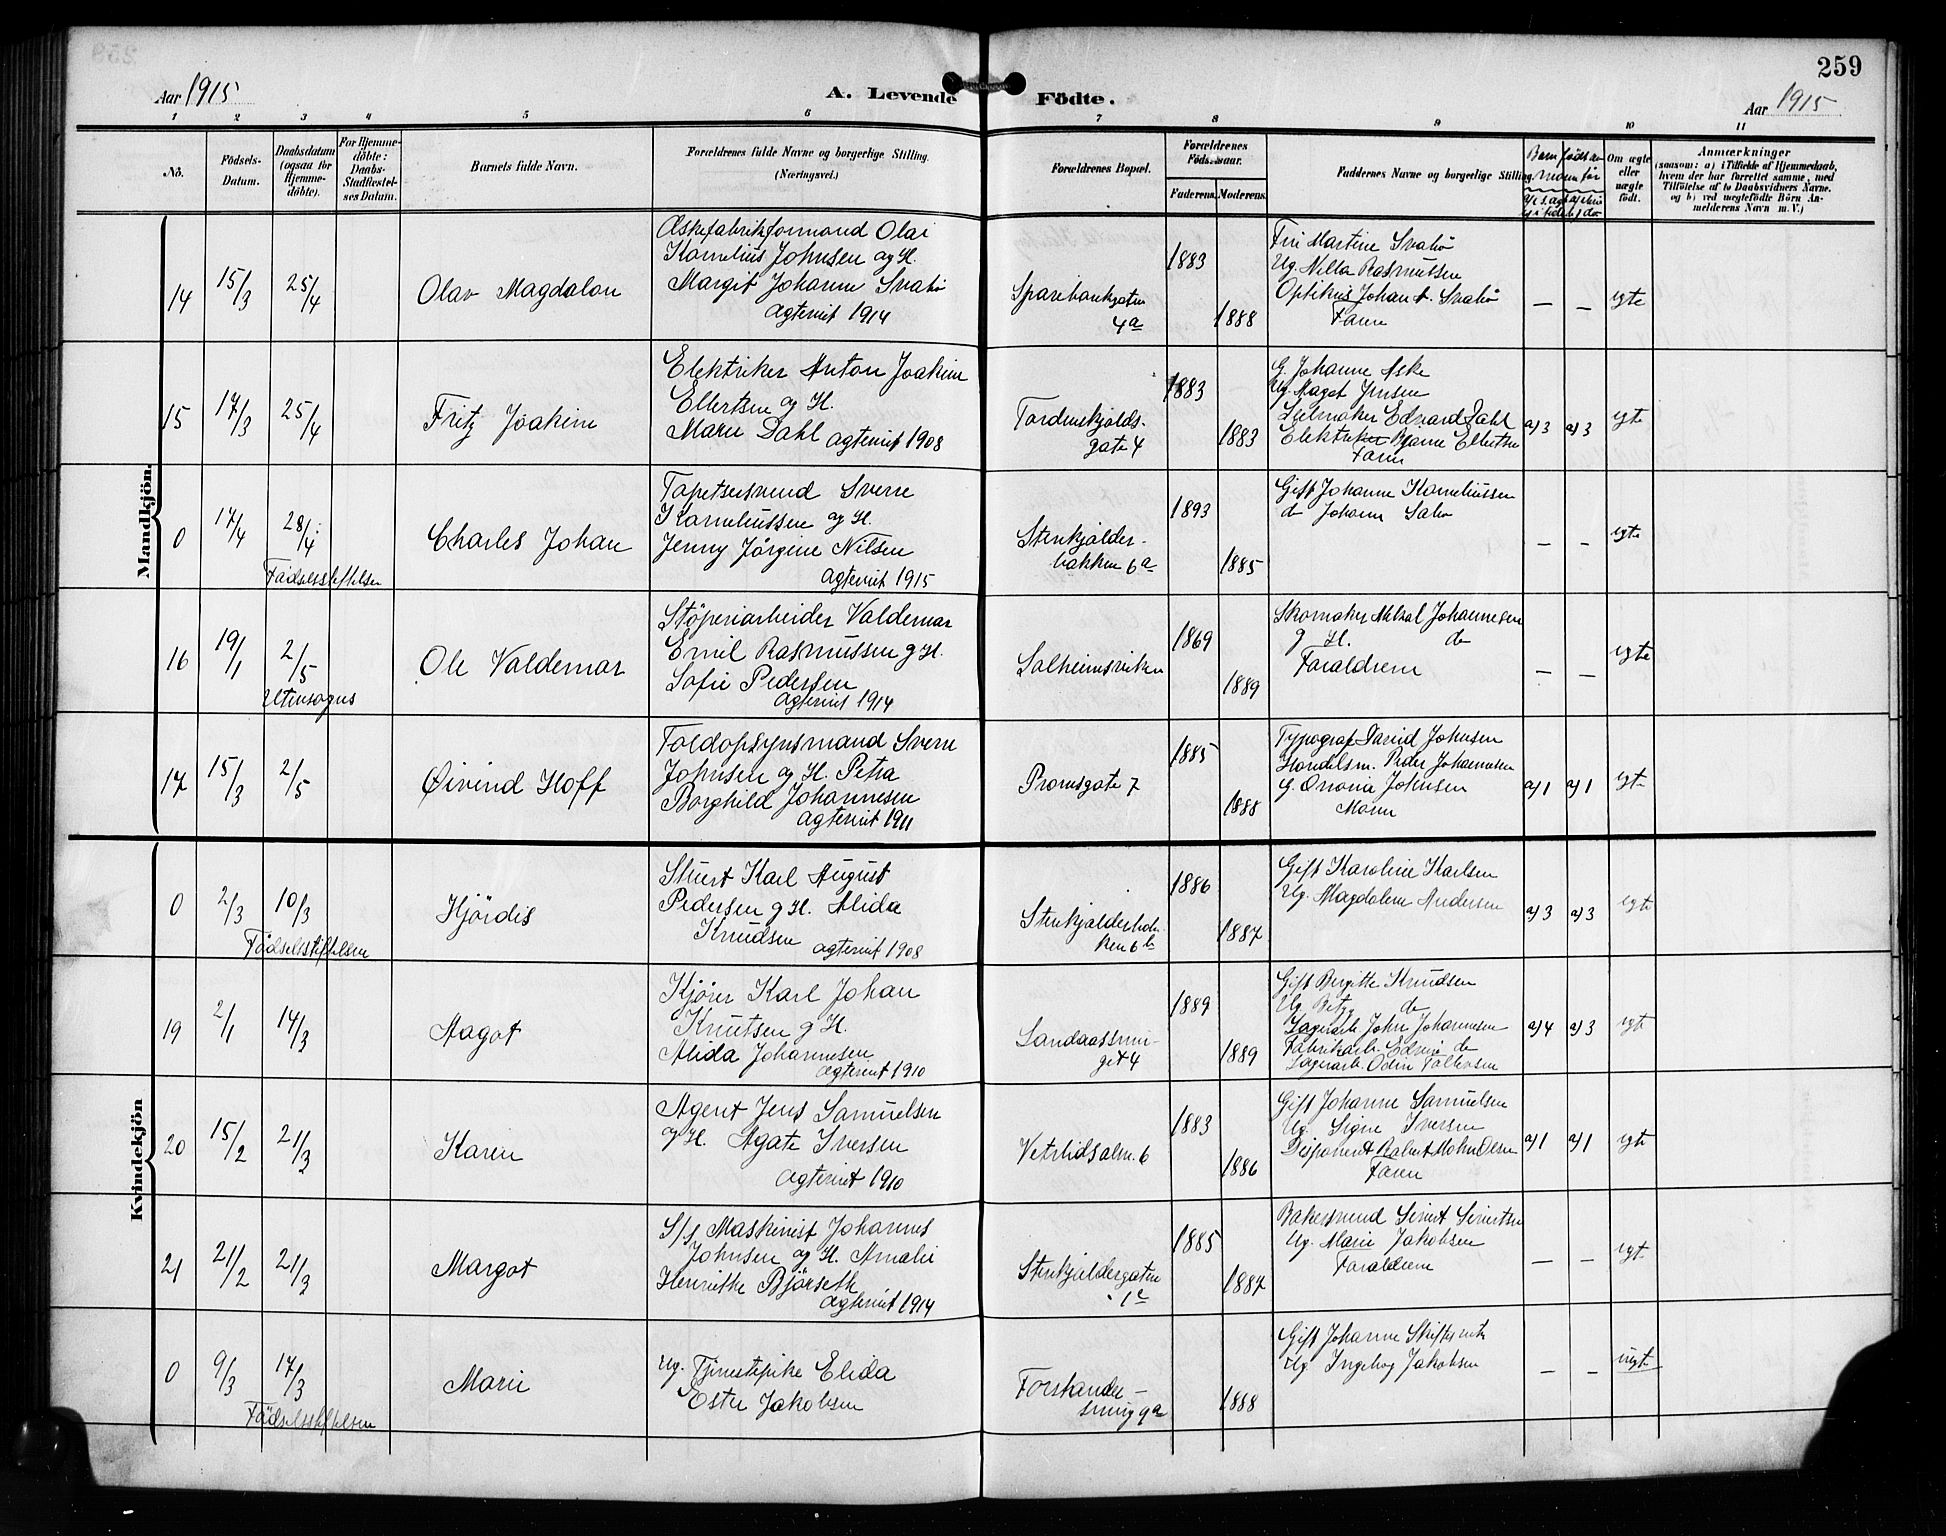 259
Aar 1915
A. Levende Födte.
Aar 1915
1 2 3 4 5 6 7 8 9 10 11
No.
Födsels-
Datum.
Daabsdatum
(ogsaa for
Hjemme-
döbte).
For Hjemme-
döbte:
Daabs-
Stadfæstel-
ses Datum.
Barnets fulde Navn.
Forældrenes fulde Navne og borgerlige Stilling.
(Næringsvei.)
Forældrenes Bopæl.
Forældrenes
Föds. aar.
Faderens. Moderens.
Faddernes Navne og borgerlige Stilling.
Barn föds av
Om ægte
eller
uægte
födt.
Anmærkninger
(saasom: a) i Tilfælde af Hjemmedaab,
hvem der har forrettet samme, med
Tilföielse af to Daabsvidners Navne.
og b) ved uægtefödte Börn An-
melderens Navn m. V.)
Mandkjön.
14 15/3 25/4
Olav Magdalon
Æskefabrikformand Olai
Kornelius Johnsen og H.
Margit Johanne Svabö
Ægteviet 1914
Sparebankgaten
4a
1883
1888
Fru Martine Svabö
Ug. Nilla Rasmussen
Optikus Johan A. Svabö
Faren
— —
egte
15 17/3 25/4
Fritz Joakim
Elektriker Anton Joakim
Ellertsen og H.
Marie Dahl Ægteviet 1908
Tordenskjolds-
gate 4
1883
1883
G. Johanne Aske
Ug. Magot Jensen
Edvard Dahl
Elektriker Bjarne Ellertsen
Faren
a) 3 a) 3
egte
0 17/4 28/4
Fødselsstiftelsen
Charles Johan
Tapetsersvend Sverre
Korneliussen og H.
Jenny Jörgine Nilsen
Ægteviet 1915
Stenkjelder-
bakken 6a
1893
1885
Gift Johanne Korneliussen
do Johanne
— —
egte
16 19/1 2/5
Utensogns
Ole Valdemar
Stöperiarbeider Valdemar
Emil Rasmussen g H.
Sofie Pedersen
Ægteviet 1914
Solheimsviken
1869
1889
Skomaker Johannesen
g H. do
Forældrene
— —
egte
17 15/3 2/5
Øivind Hoff
Toldopsynsmand Sverre
Johnsen og H. Petra
Borghild Johannesen
Ægteviet 1911
Promsgate 7
1885
1888
Typograf David Johnsen
Handelsm. Peder Johannesen
G. Johnsen
Moren
a) 1 a) 1
egte
Kvindekjön
0 2/3 10/3
Födselsstiftelsen
Hjördis
Stuert Karl August
Pedersen g H. Alida
Knudsen Ægteviet 1908
Stenkjelderbak-
ken 6b
1886
1887
Gift Karoline Karlsen
Ug. Magdalene Andersen
a) 3 a) 3
egte
19 2/1 14/3
Aagot
Kjörer Karl Johan
Knutsen g H.
Alida Johannesen
Ægteviet 1910
Sandaassmu-
get 4
1889
1889
Gift Birgitte Knudsen
Ug. Betzy do
Lagerarb. John Johannesen
Fabrikarb. Edvin do
Lagerarb. Odin
a) 4 a) 3
egte
20 15/2 21/3
Karin
Agent Jens Samuelsen
og H. Agate Iversen
Ægteviet 1910
Vetrlidsalm. 6
1883
1886
Gift Johanne Samuelsen
Ug. Signe Iversen
Disponent Robert Mohn Olsen
Faren
a) 1 a) 1
egte
21 21/2 21/3
Margot
S/s Maskinist Johannes
Johnsen og H. Amalie
Henriette Björseth
Ægteviet 1914
Stenkjeldergaten
1c
1885
1887
Bakersvend Sivert Sivertsen
Ug. Marie Jakobsen
Forældrene
— —
egte
0 9/3 17/3
Fødselsstiftelsen
Marie
Ug. Tjenestepike Elida
Ester Jakobsen
Forstander-
smug 9a
1888
Gift Johanne
Ug Ingeborg Jakobsen
— —
uegte